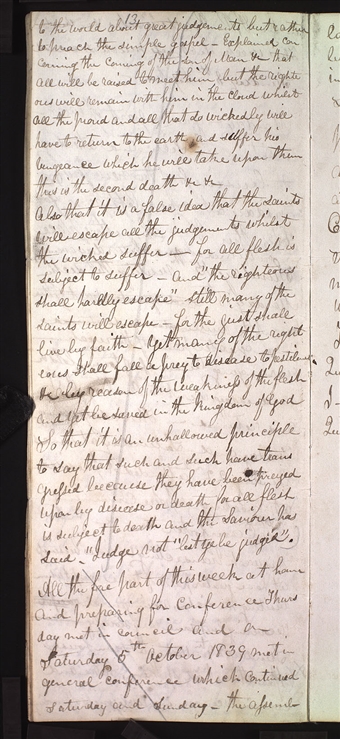 131
to the world about great judgements but rather
to preach the simple gospel – Explained con
cerning the coming of the Son of Man &c that
all will be raised to meet him but the righte
ous will remain with him in the cloud whilst
all the proud and all that do wickedly will
have to return to the earth and suffer his
vengeance which he will take upon them
this is the second death &c &c
Also that it is a false idea that the saints
will escape all the judgements whilst
the wicked suffer – for all flesh is
subject to suffer – and "the righteous
shall hardly escape" still many of the
saints will escape – for the just shall
live by faith – Yet many of the right
eous shall fall a prey to disease to pestilence
&c by reason of the weakness of the flesh
and yet be saved in the Kingdom of God
So that it is an unhallowed principle
to say that such and such have trans
gressed because they have been preyed
upon by disease or death for all flesh
is subject to death and the Saviour has
said, "Judge not "lest ye be judged".
All the fore part of this week at home
and preparing for Conference Thurs
day met in council and on
Saturday 5th October 1839 met in
general conference which continued
Saturday and Sunday – the assemb